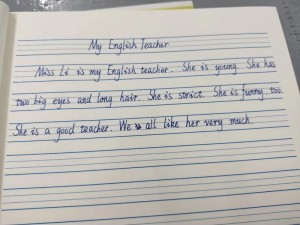 My English Teacher
Miss Li is my English teacher. She is young. She has
two big eyes and long hair. She is strict. She is funny, too.
She is a good teacher. We all like her very much.